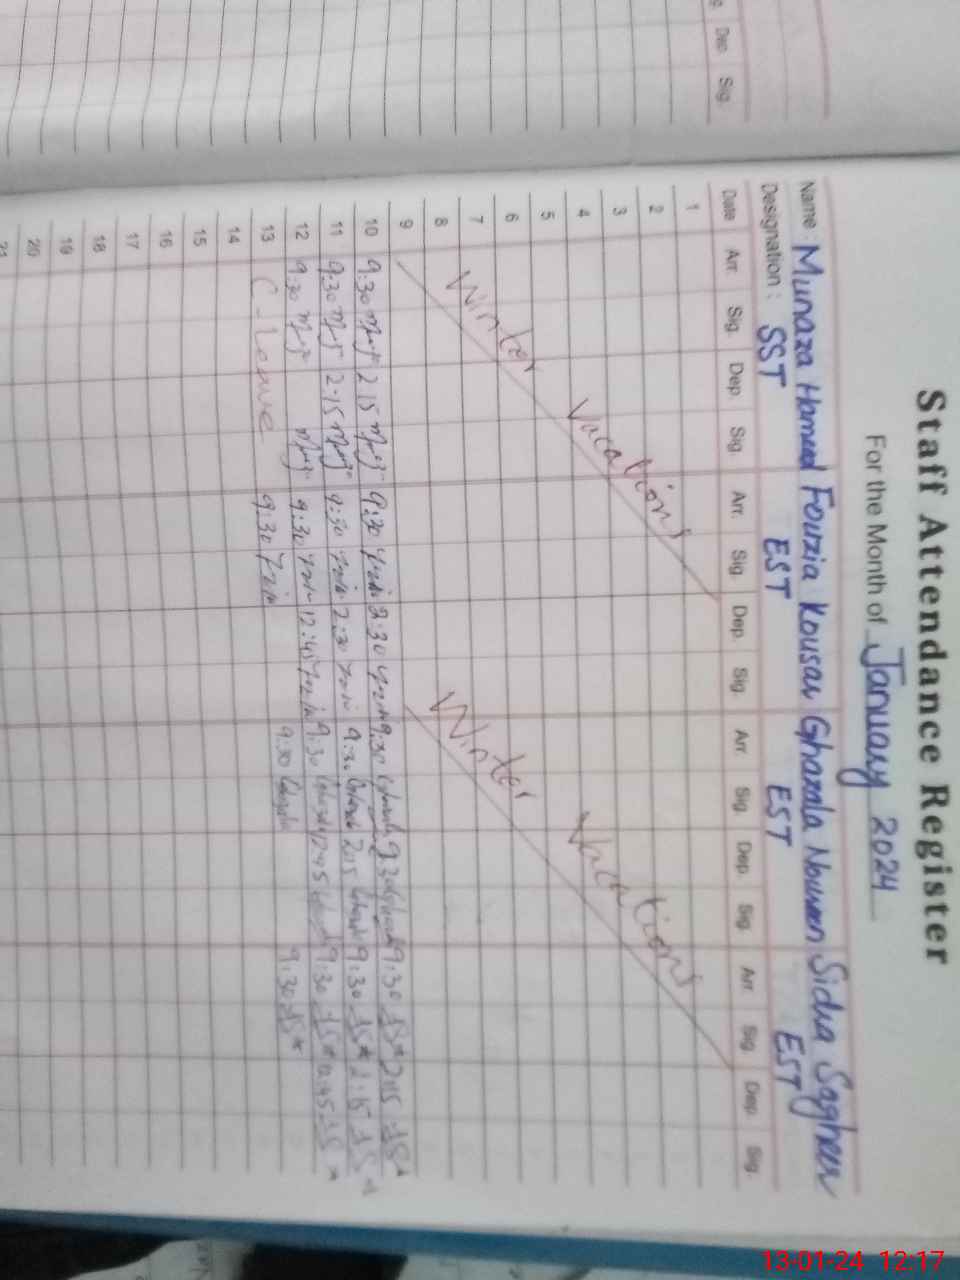 Dep. Sig.
Staff Attendance Register
For the Month of January 2024
Name: Munaza Hameed Fouzia Kousar Ghazala Noureen Sidra Sagheer
Designation: SST EST EST EST
Date Arr. Sig. Dep. Sig. Arr. Sig. Dep. Sig. Arr. Sig. Dep. Sig. Arr. Sig. Dep. Sig.
1
2
3
4
5
6
7
8
9
Winter Vacations Winter Vacations
10 9:30 2:15 9:30 2:30 9:30 9:30 2:15
11 9:30 2:15 9:30 2:30 9:30 2:15 9:30 2:15
12 9:30 9:30 12:45 9:30 12:45 9:30 12:45
13 C. Leave 9:30 9:30 9:30
14
15
16
17
18
19
20
21
13-01-24 12:17